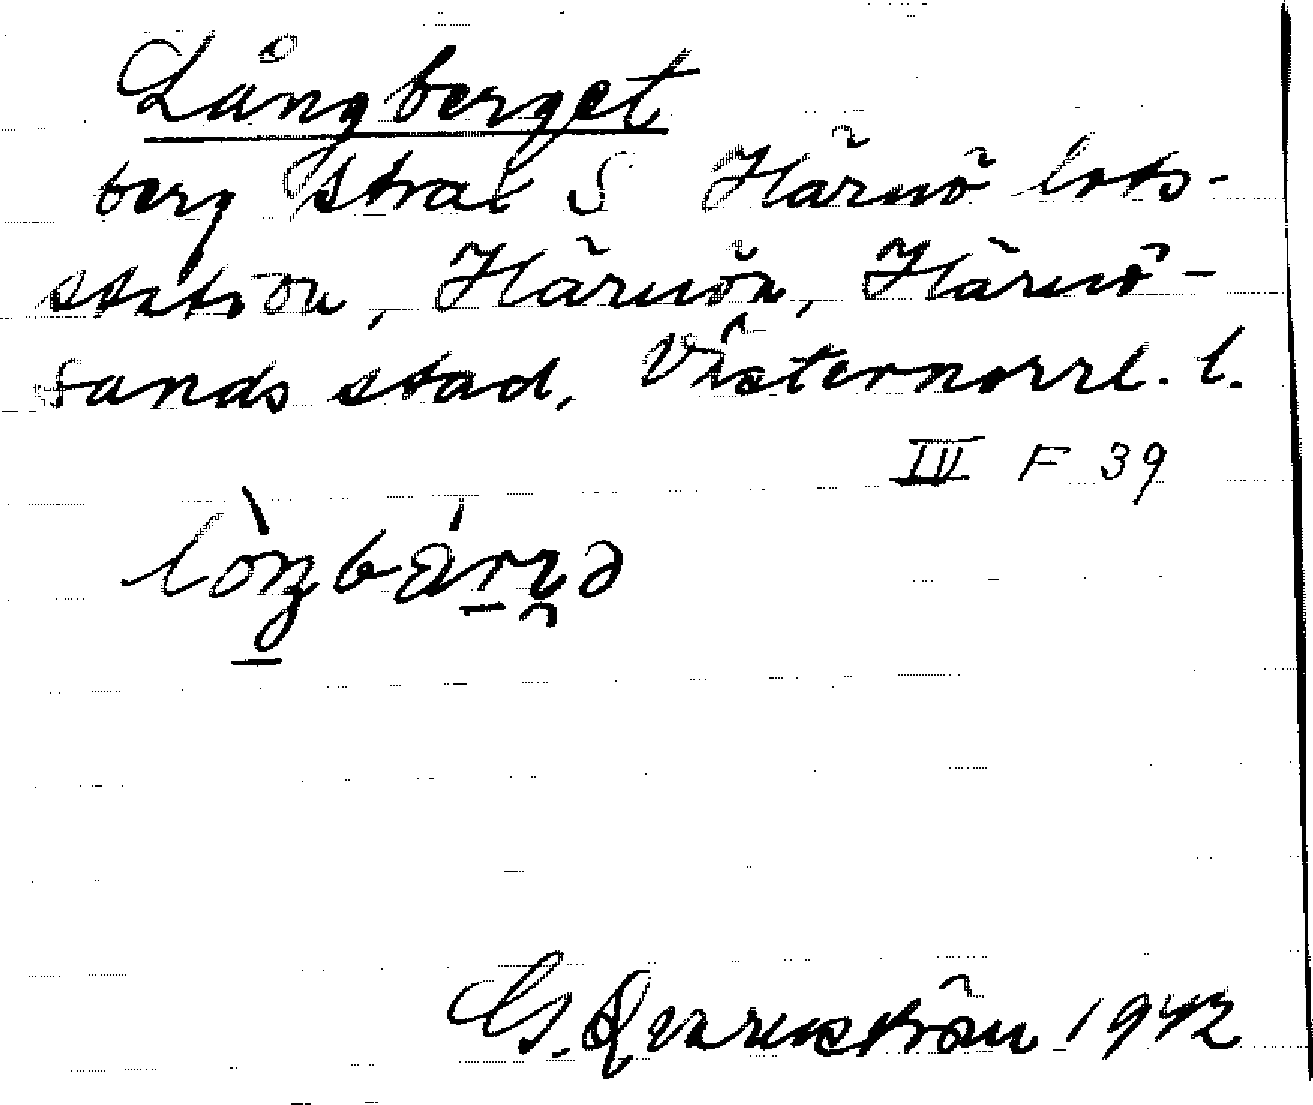 Långberget
berg strax S Härnö lots-
station, Härnön, Härnö-
sands stad, Västernorrl. l.
IV F 39
G. Qvarnström 1942